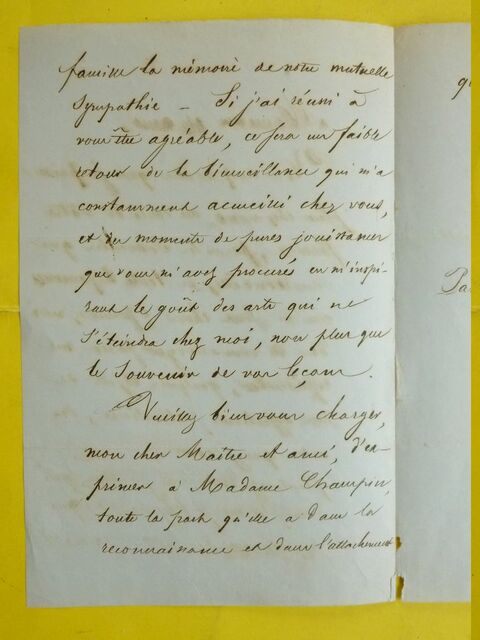 famille la mémoire de notre mutuelle
sympathie – Si j'ai réussi à
vous être agréable, ce sera un faible
retour de la bienveillance qui m'a
constamment accueilli chez vous,
et des moments de pures jouissances
que vous m'avez procurés en m'inspi-
rant le goût des arts qui ne
s'éteindra chez moi, non plus que
le souvenir de vos leçons.
Veuillez bien vous charger,
mon cher Maître et ami, d'ex-
primer à Madame Champin,
toute la part qu'elle a dans la
reconnaissance et dans l'attachement